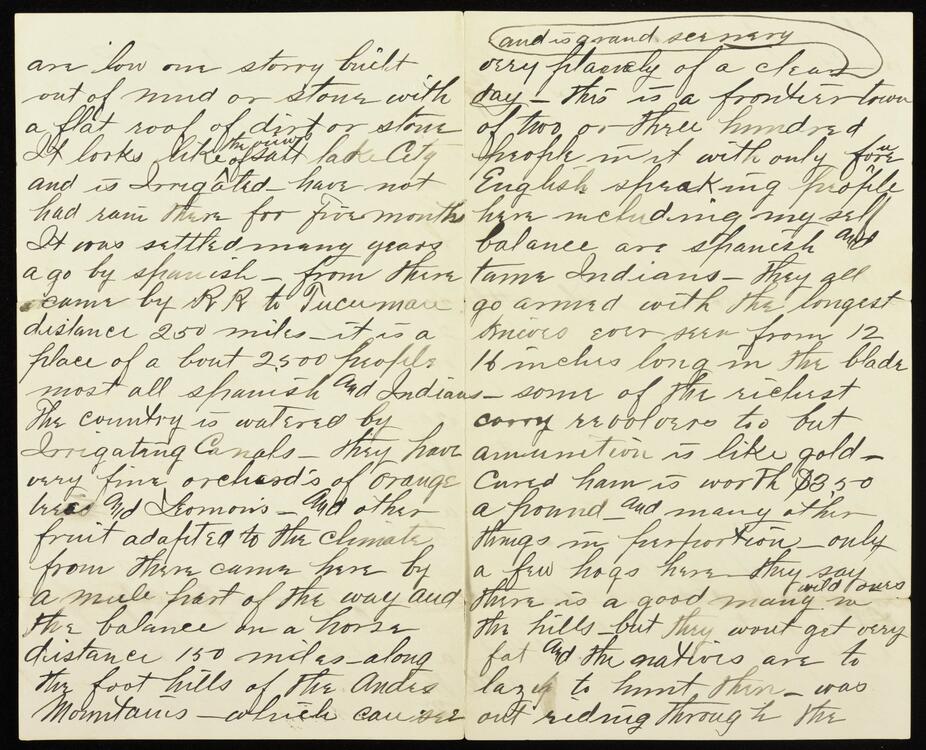 are low one storry built
out of mud or stone with
a flat roof of dirt or stone
It lorks like the view of Salt lake City
and is Irrigated - have not
had rain there for five months
It was settled many years
a go by spanish - from there
came by R R to Tucuman
distance 250 miles - it is a
place of a bout 2500 people
most all spanish and Indians
The country is watered by
Irrigating Canals - they have
very fine orchard's of orange
trees and Leomons - and other
fruit adapted to the climate
from there came here by
a mule part of the way and
the balance on a horse
distance 150 miles - along
the foot hills of the Andes
Mountains - which can see
and is grand scenery
very plainely of a clear
day - this is a frontier town
of two or three hundred
people in it with only four
English speaking people
here including my self
balance are spanish and
tame Indians - they all
go armed with the longest
knives ever seen from 12
16 inches long in the blade
- some of the richest
carry revolvers too but
amunition is like gold -
Cured ham is worth $3.50
a pound - and many other
things in perportion - only
a few hogs here - they say
there is a good many wild ones in
the hills - but they wont get very
fat and the natives are to
lazy to hunt them - was
out rideing through the